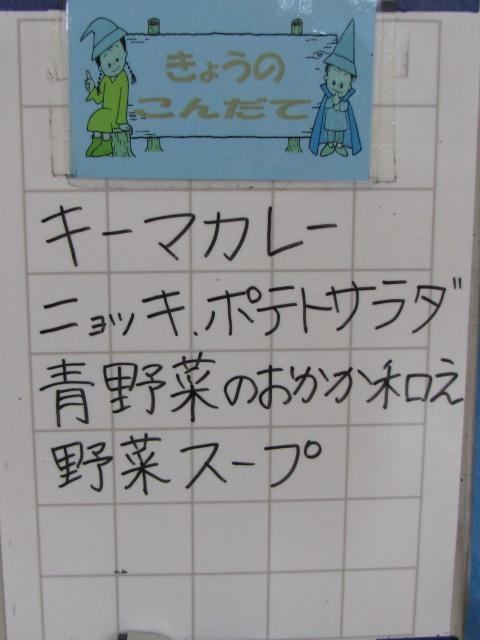 きょうの
こんだて
キーマカレー
ニョッキ、ポテトサラダ
青野菜のおかか和え
野菜スープ